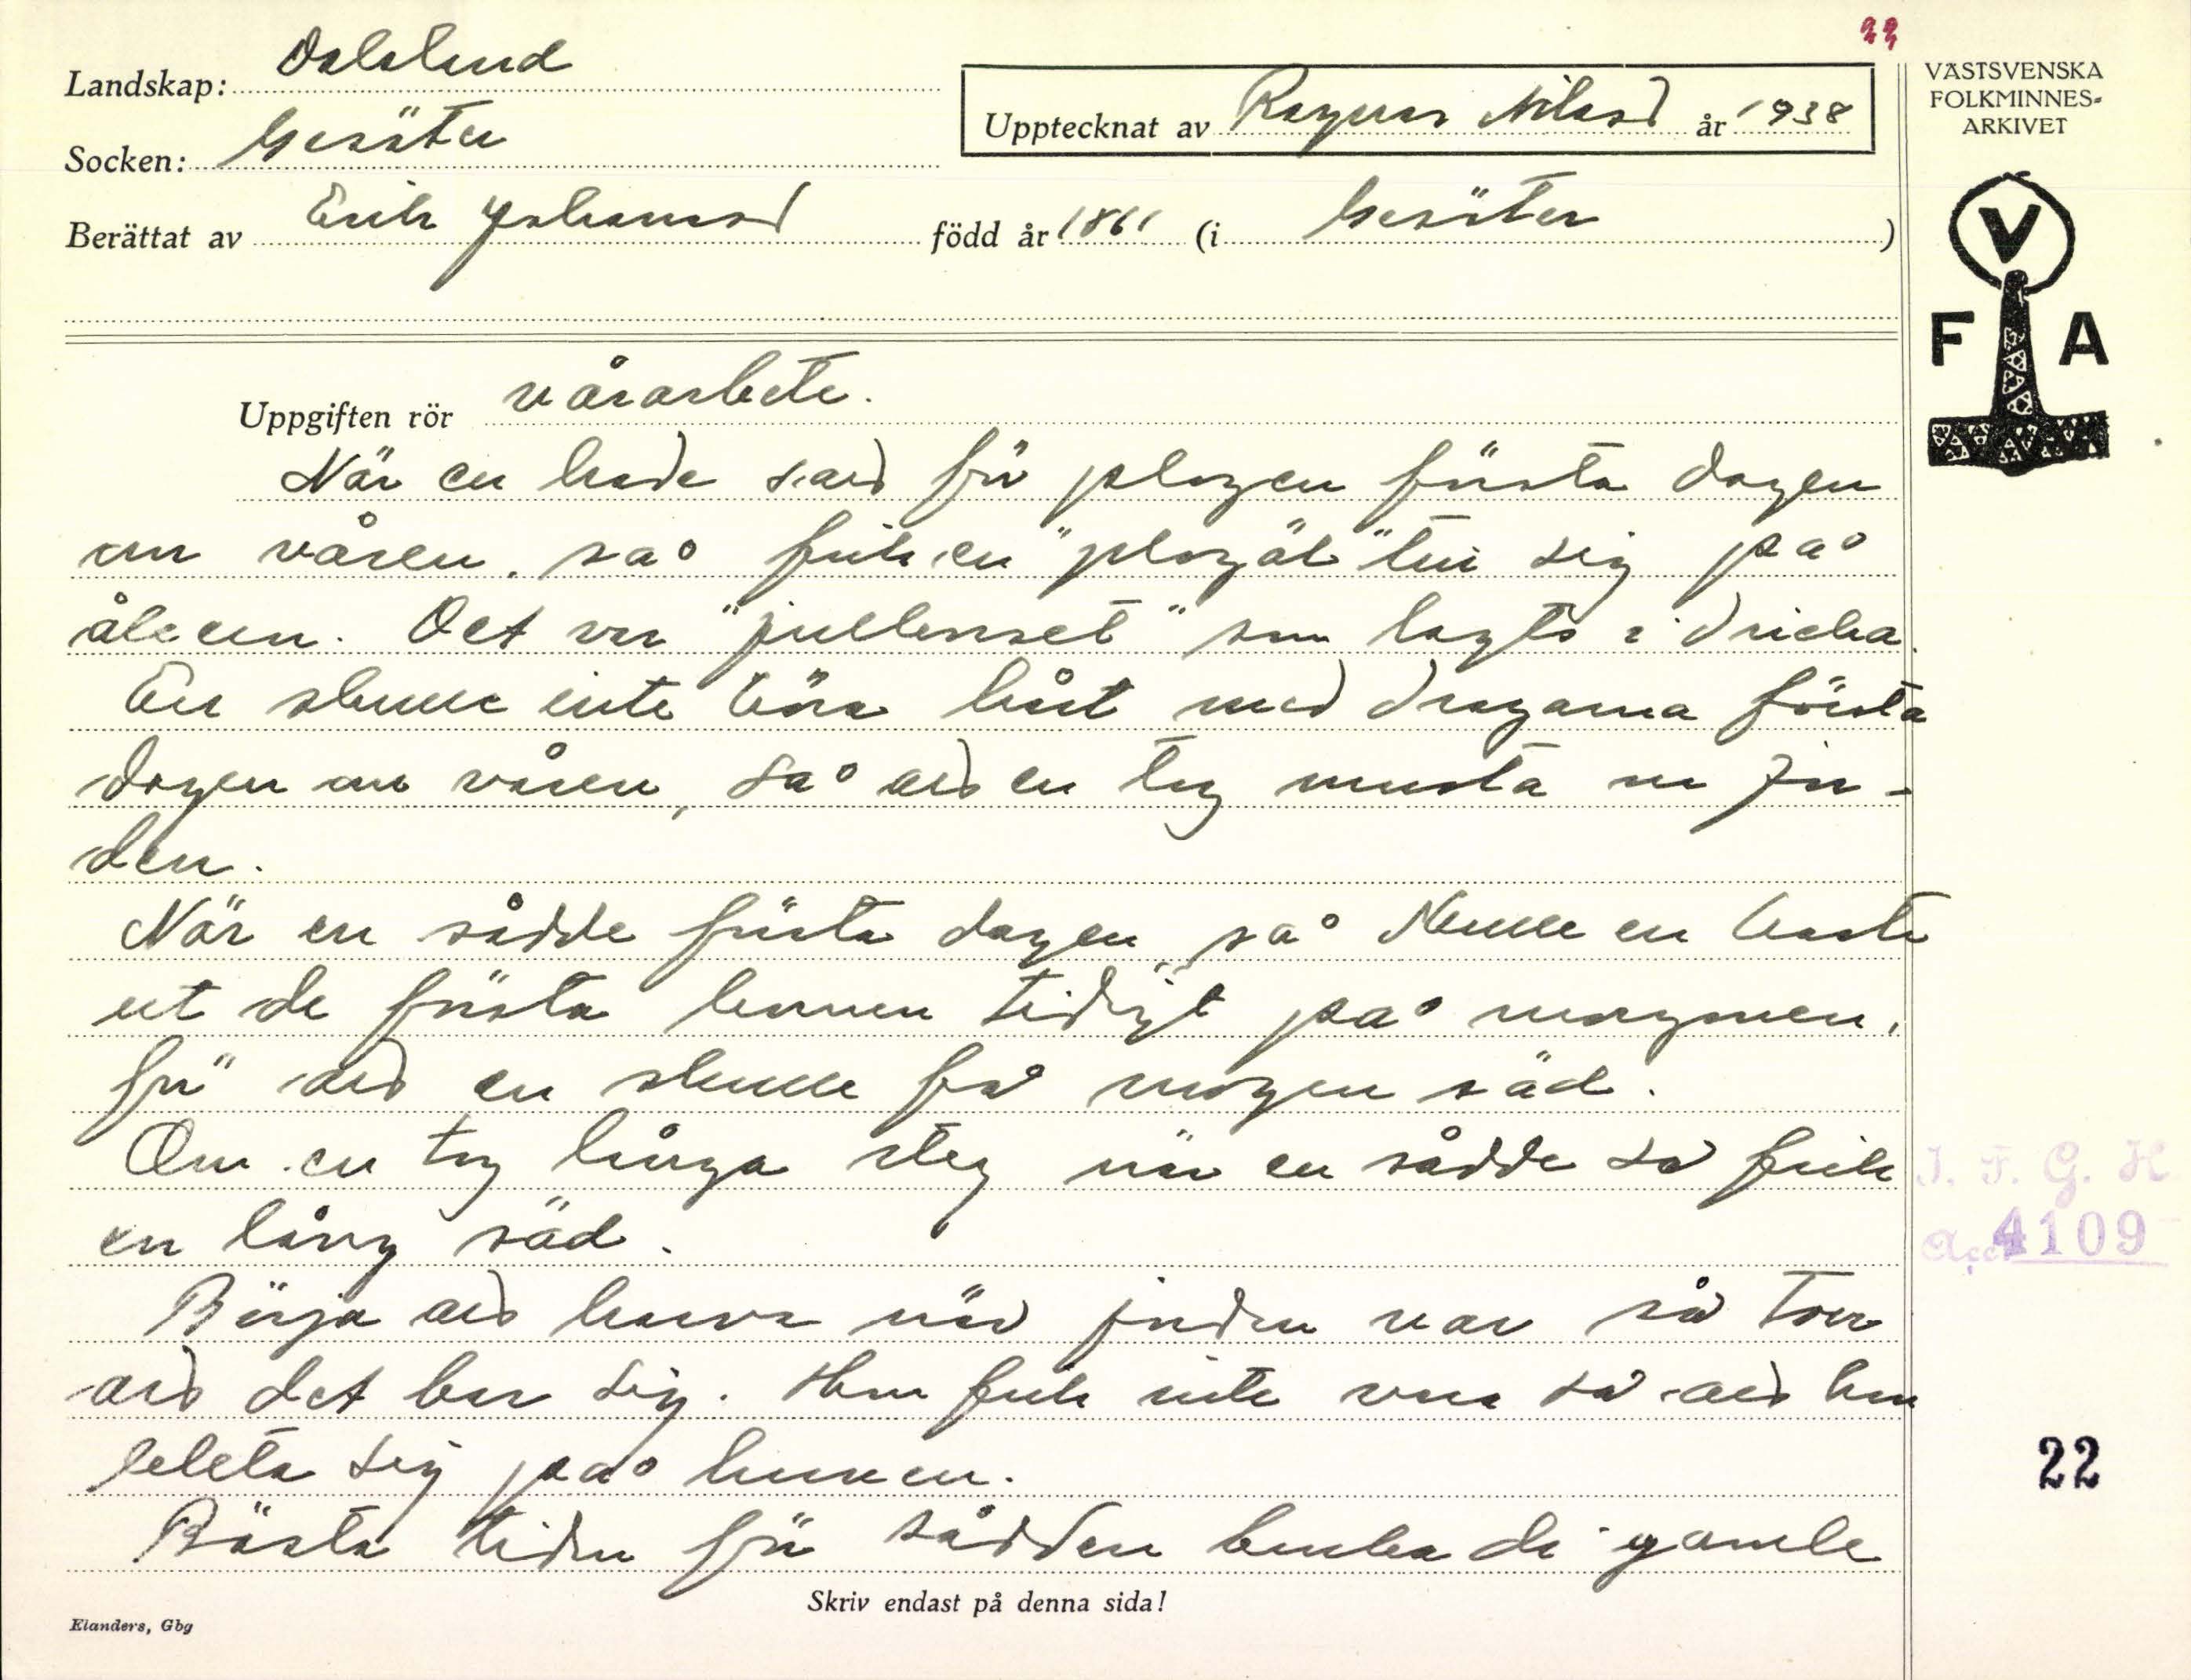 22
Landskap: Dalsland
Socken: Gesäter
Upptecknat av Ragnar Nilsson år 1938
Berättat av Erik Johansson född år 1861 (i Gesäter)
VÄSTSVENSKA
FOLKMINNES-
ARKIVET
V
F A
Uppgiften rör vårarbete.
När en hade satt för plogen första dagen
om våren, så fick en "plogöl" te sig på
åkeren. Det var "jullerset" som lagts i dricka.
En skulle inte köra hårt med dragarna första
dagen om våren, så att en tog musta ur jor-
den.
När en sådde första dagen så skulle en kasta
ut de första kornen tidigt på morgonen,
för att en skulle få mogen säd.
Om en tog långa steg när en sådde så fick
en lång säd.
Börja att harva när jorden var så torr
att det bar sig. Hon fick inte vara så att hon
kleta sig på
Bästa tiden för sådden bruka de gamle
Skriv endast på denna sida!
Elanders, Gbg
I. F. G. H.
Acc. 4109
22